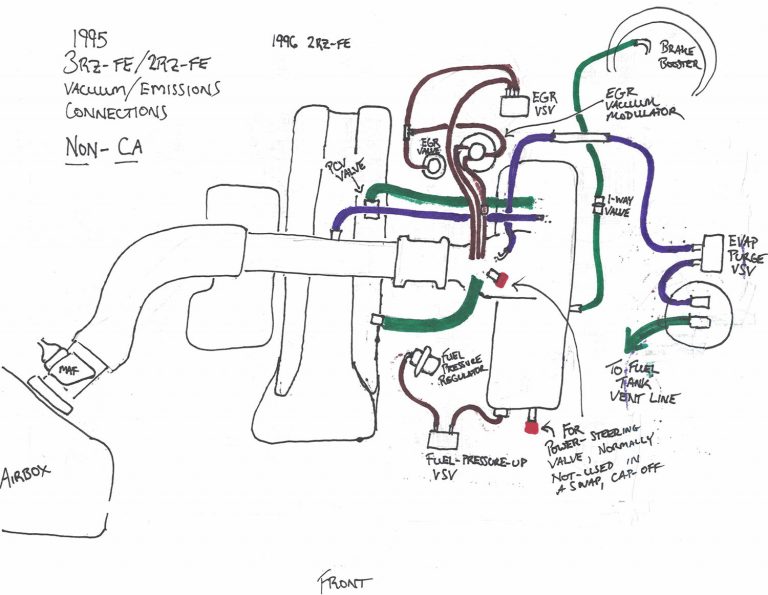 1995
3RZ-FE/2RZ-FE
VACUUM/EMISSIONS
CONNECTIONS
NON-CA
1996 2RZ-FE
BRAKE
BOOSTER
EGR
VSV
EGR
VACUUM
MODULATOR
EGR
VALVE
PCV
VALVE
1-WAY
VALVE
EVAP
PURGE
VSV
MAF
FUEL
PRESSURE
REGULATOR
TO FUEL
TANK
VENT LINE
FOR
POWER-STEERING
VALVE, NORMALLY
NOT-USED IN
A SWAP, CAP-OFF
FUEL-PRESSURE-UP
VSV
AIRBOX
FRONT